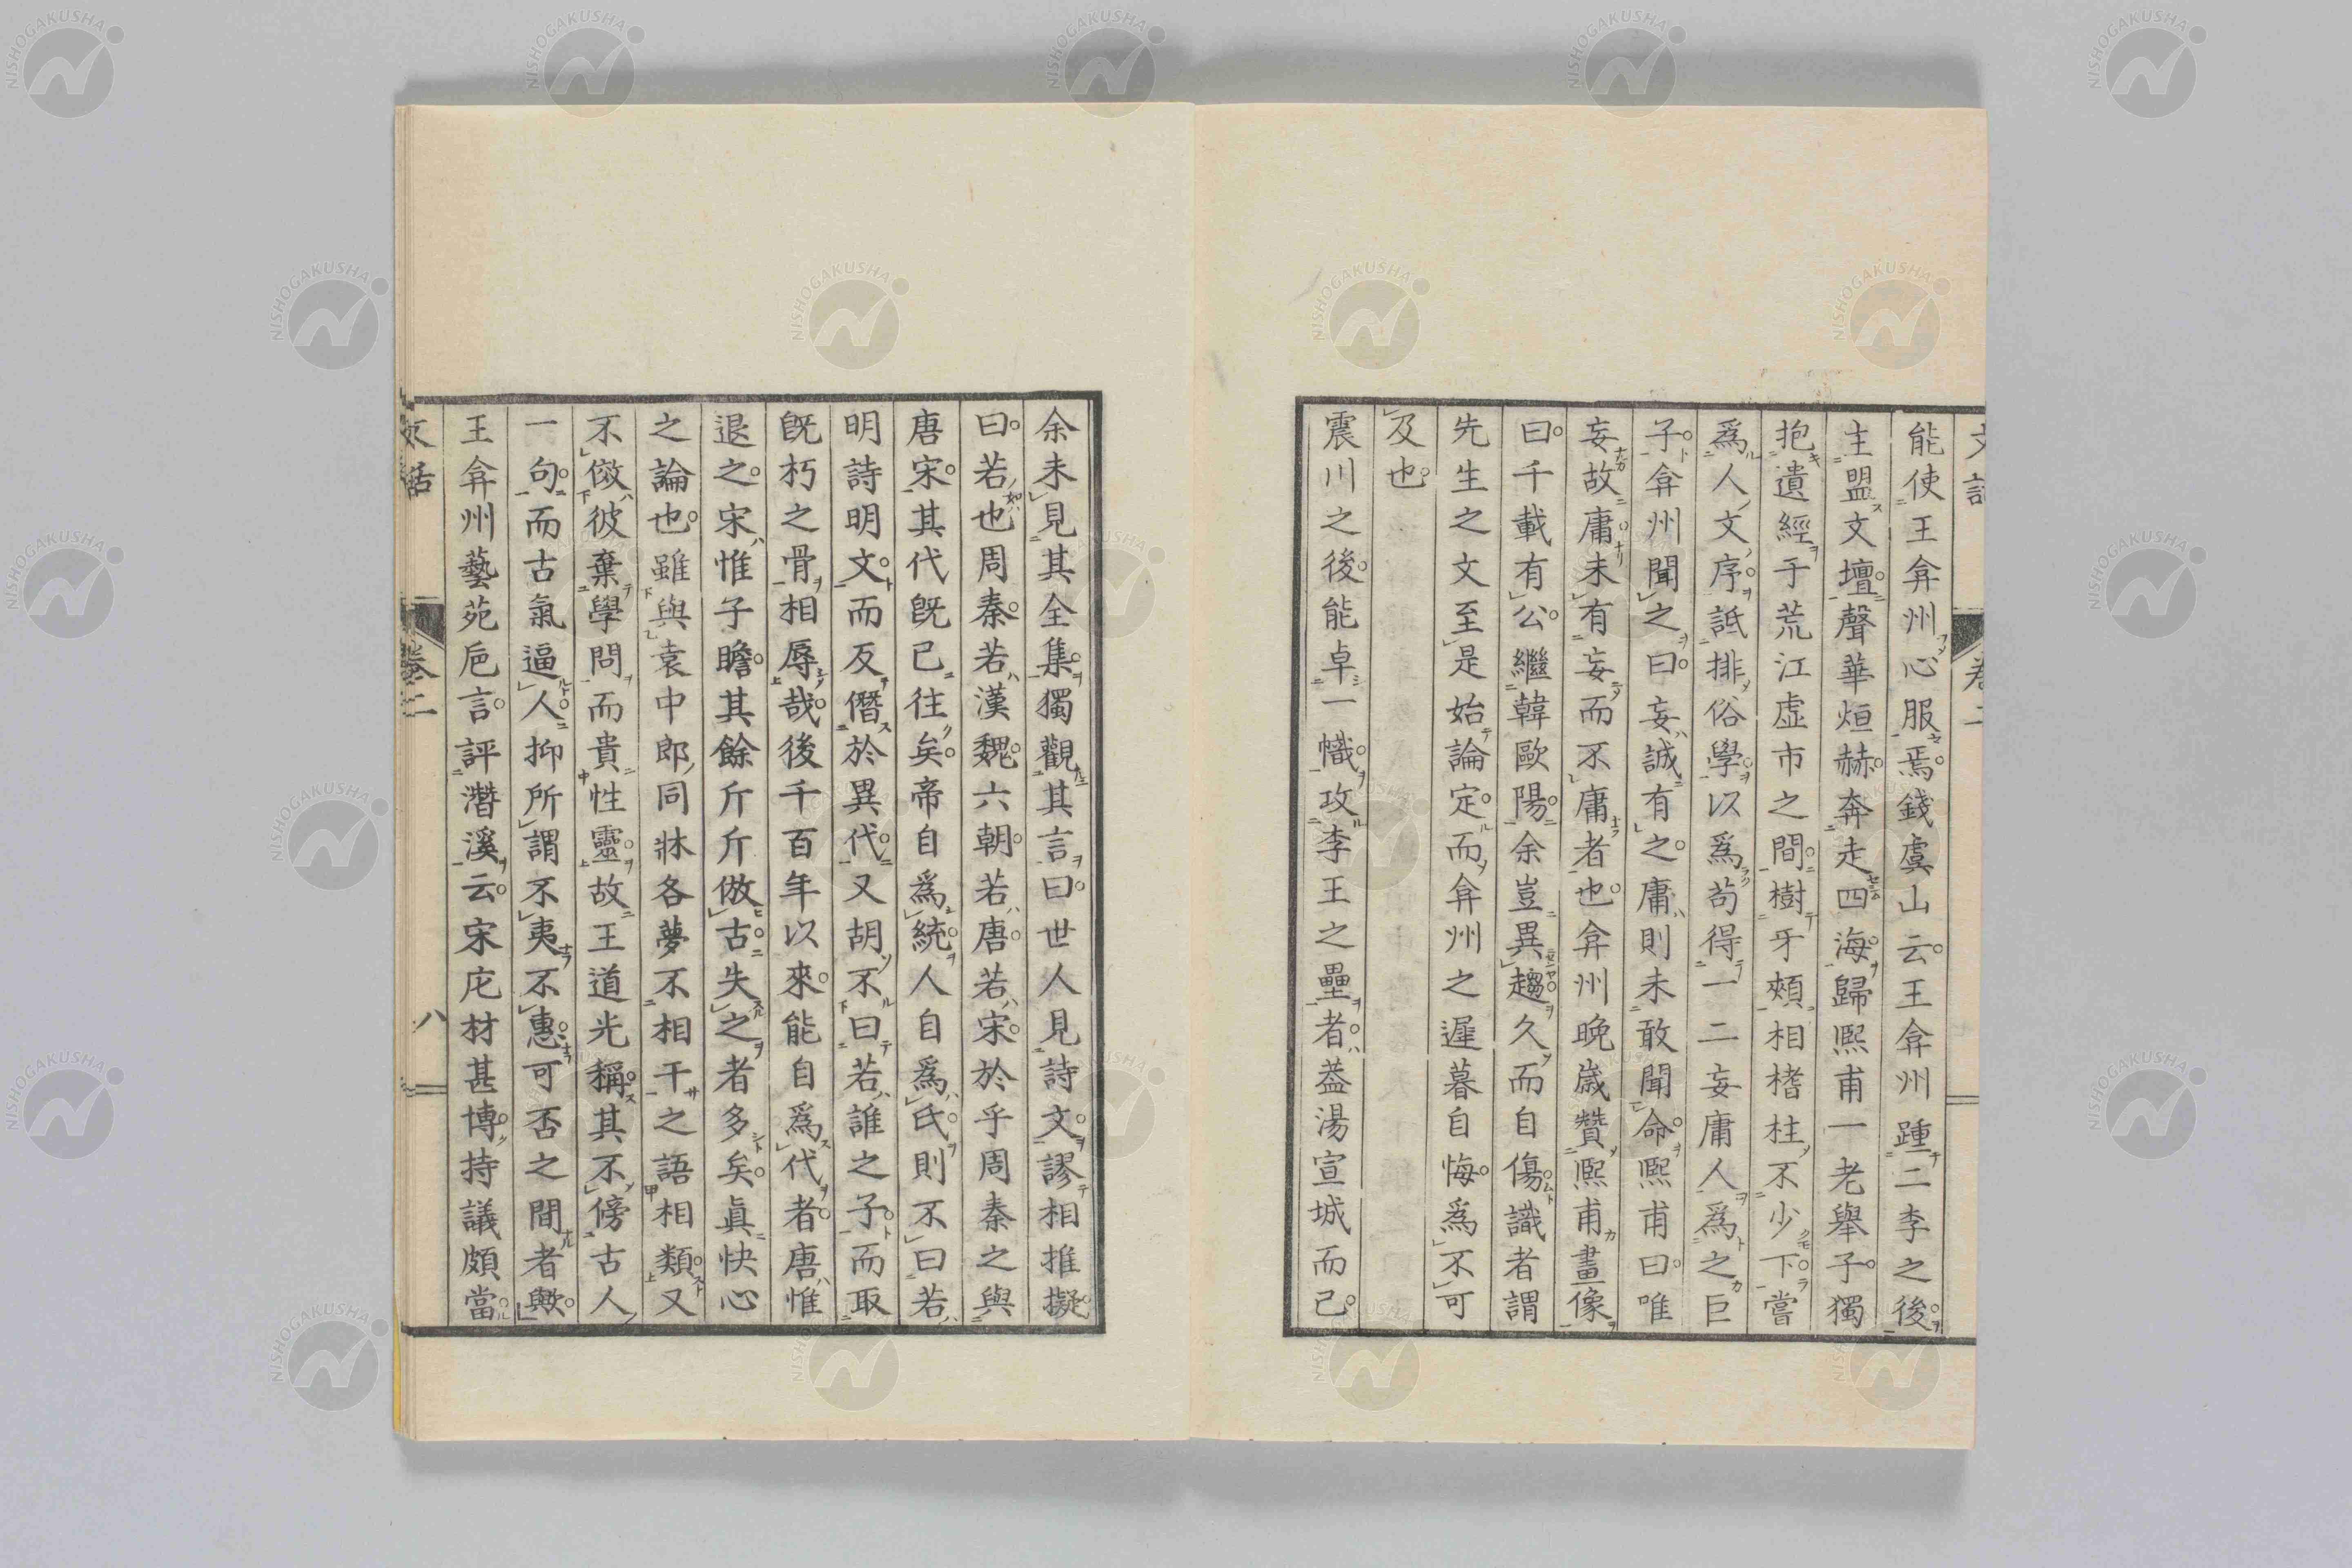 能使王弇州心服焉。錢虞山云。王弇州踵二李之後。
主盟文壇。聲華烜赫。奔走四海。歸熙甫一老舉子。獨
抱遺經于荒江虛市之間。樹牙頰相榰柱不少下。嘗
爲人文序。詆排俗學。以爲苟得一二妄庸人爲之巨
子。弇州聞之。曰。妄誠有之。庸則未敢聞命。熙甫曰。唯
妄故庸。未有妄而不庸者也。弇州晩歲贊熙甫畫像
曰。千載有公。繼韓歐陽。余豈異趨。久而自傷。識者謂
先生之文至是始論定。而弇州之遲暮自悔。爲不可
及也。
震川之後。能卓一幟。攻李王之壘者。葢湯宣城而已。
余未見其全集。獨觀其言。曰。世人見詩文。謬相推擬
曰。若也周秦。若漢魏。六朝。若唐。若宋。於乎周秦之與
唐宋。其代旣已往矣。帝自爲統。人自爲氏。則不曰若
明詩明文。而反僭於異代。又胡不曰若誰之子。而取
旣朽之骨。相辱哉。後千百年以來。能自爲代者。唐惟
退之。宋惟子瞻。其餘斤斤倣古。失之者多矣。眞快心
之論也。雖與袁中郎同牀各夢不相干之語相類。又
不倣彼棄學問而貴性靈。故王道光稱其不傍古人
一句。而古氣逼人。抑所謂不夷不惠。可否之間者歟。
王弇州藝苑巵言。評潛溪云。宋庀材甚博。持議頗當。
文話
卷二
八